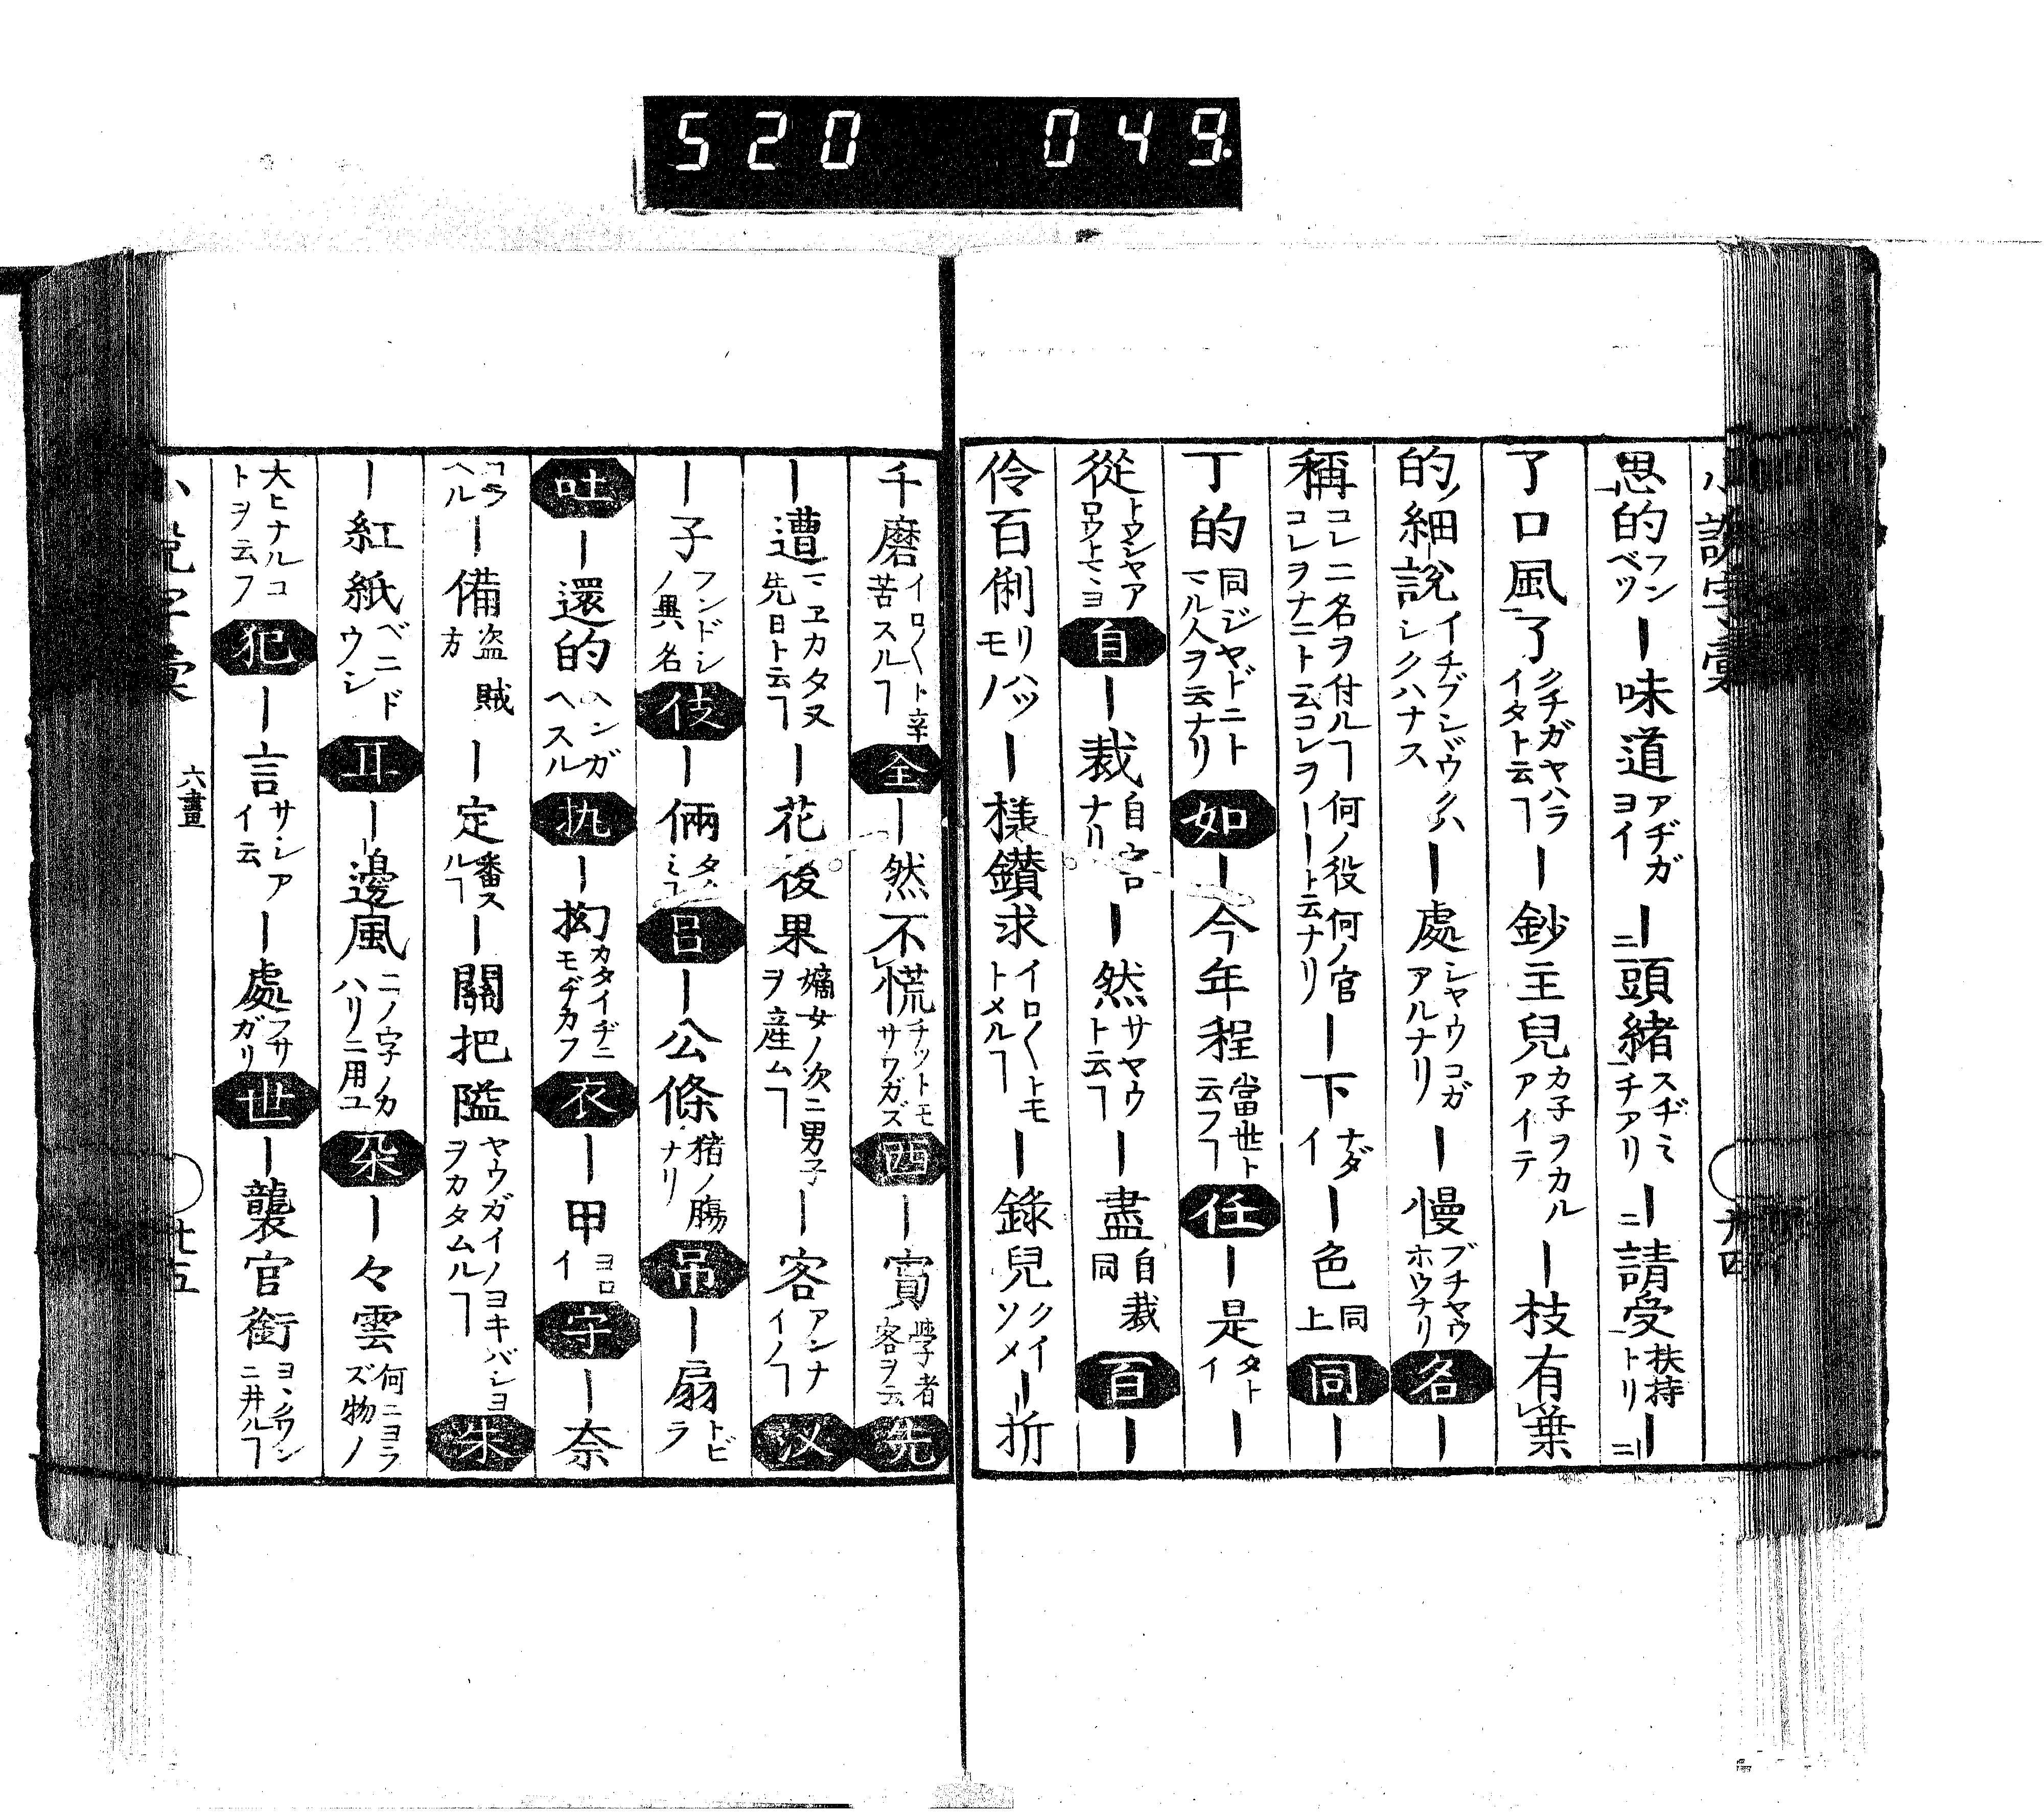 520 049.
小説字彙
思的フンベツ｜味道アヂガヨイ｜ニ頭緒スヂミチアリ｜ニ請受扶持トリ｜ニ
了口風了クチガヤハライタト云ヿ｜鈔主兒カ子ヲカルアイテ｜枝有葉
的細說イチブシジウクハシクハナス｜處シヤウコガアルナリ｜慢ブチヤウホウナリ名｜
稱コレニ名ヲ付ルヿコレヲナニト云コレヲ｜何ノ役何ノ官｜ト云ナリ｜下ナダイ｜色同上同｜
丁的同ジヤドニトマル人ヲ云ナリ如｜今年程當世ト云フヿ任｜是タトイ｜
從トウシヤアロウトモヽヨ自｜裁自害ナリ｜然サヤウト云ヿ｜盡自裁同百｜
伶百俐リハツモノ｜樣鑽求イロ〱トモトメルヿ｜錄兒クイソメイ｜折
千磨イロ〱ト辛苦スルヿ全｜然不慌チツトモサワガズ西｜賓學者客ヲ云先
｜遭マヱカタ又先日ト云ヿ｜花後果嫡女ノ次ニ男子ヲ産ムヿ｜客アンナイノヿ汊
｜子フンドシノ異名伎｜倆呂｜公條猪ノ腸ナリ吊｜扇トビラ
吐｜還的ヘンガヘスル執｜拗カタイヂニモヂカフ衣｜甲ヨロイ守｜奈
コラヘル｜備盗賊方｜定番スルヿ｜關把隘ヤウガイノヨキバシヨヲカタムルヿ朱
｜紅紙ベニドウシ耳｜邊風ニノ字ノカハリニ用ユ朶｜々雲何ニヨラズ物ノ
大ヒナルコトヲ云フ犯｜言サシアイ云｜處フサガリ世｜襲官銜ヨヽクワンニ井ルヿ
六畫 廿五